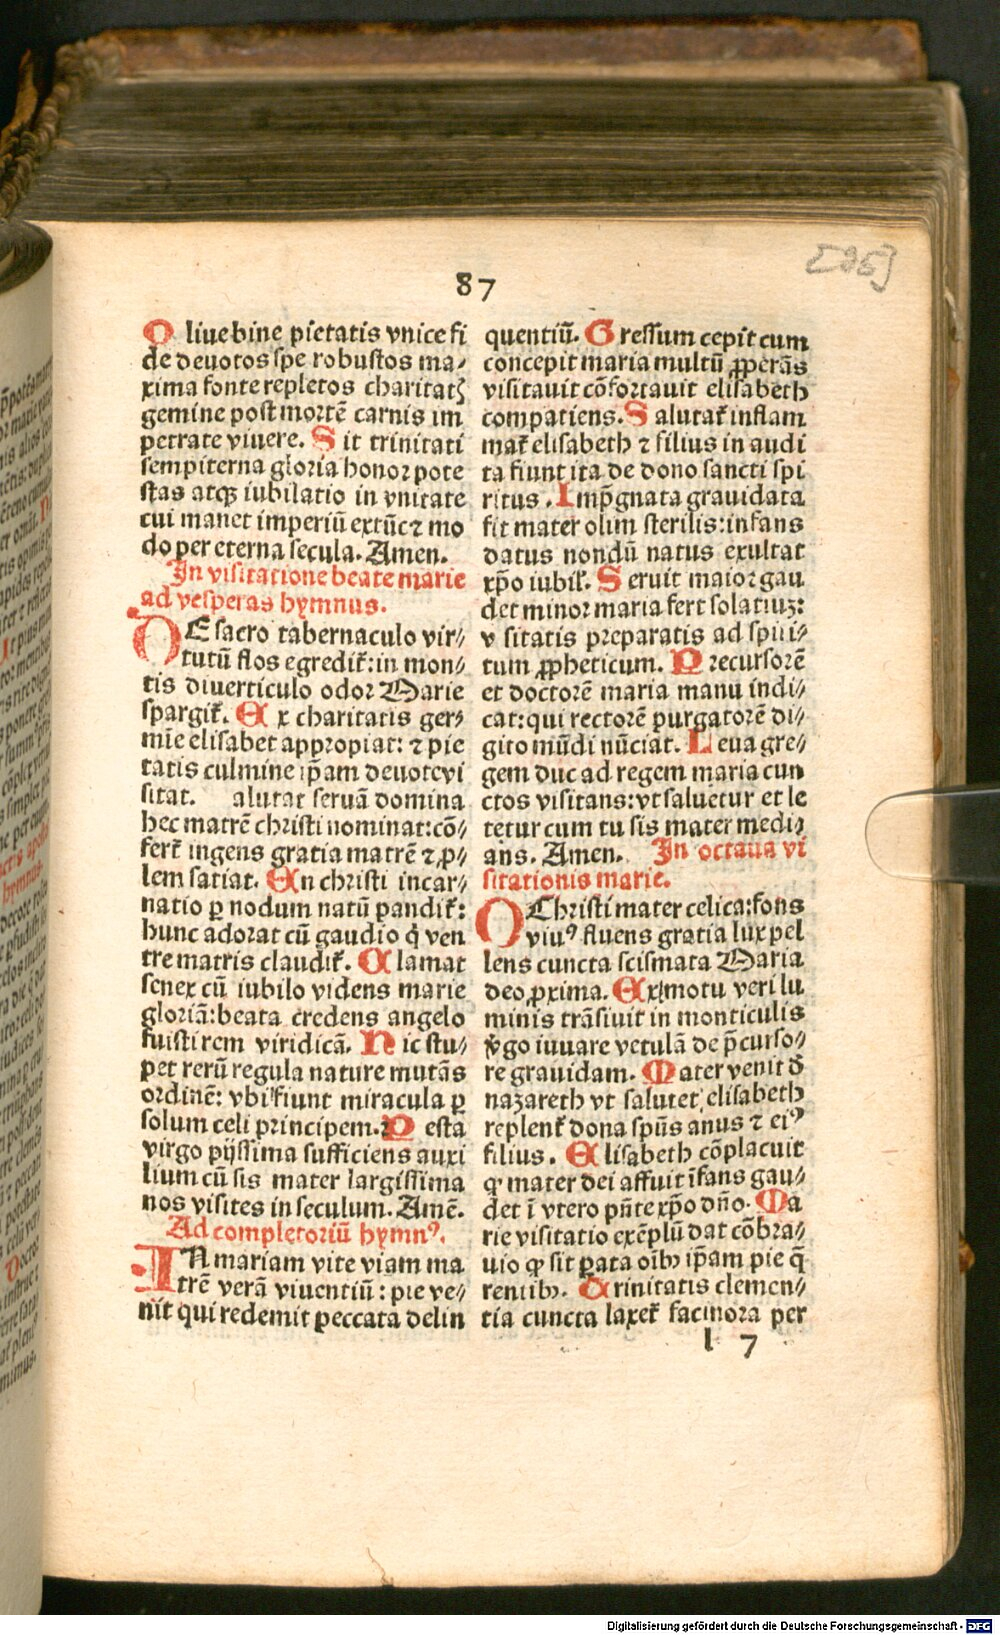 [256]
87
O liue bine pietatis vnice fi
de deuotos spe robustos ma⸗
xima fonte repletos charitatꝫ
gemine post mortē carnis im
petrate viuere. S it trinitati
sempiterna gloria honor pote
stas atqꝫ iubilatio in vnitate
cui manet imperiū extūc ⁊ mo
do per eterna secula. Amen.
In visitatione beate marie
ad vesperas hymnus.
DE sacro tabernaculo vir⸗
tutū flos egredit᷑: in mon⸗
tis diuerticulo odor Marie
spargit᷑. E x charitatis ger⸗
mīe elisabet appropiat: ⁊ pie
tatis culmine ip̄am deuote vi
sitat. alutat seruā domina
hec matrē christi nominat: cō⸗
fert᷑ ingens gratia matrē ⁊ ꝓ⸗
lem satiat. E n christi incar⸗
natio ꝑ nodum natū pandit᷑:
hunc adorat cū gaudio q̇ ven
tre matris claudit᷑. C lamat
senex cū iubilo videns marie
gloriā: beata credens angelo
fuisti rem viridicā. N ic stu⸗
pet rerū regula nature mutās
ordinē: vbi fiunt miracula ꝑ
solum celi principem. P esta
virgo pijssima sufficiens auxi
lium cū sis mater largissima
nos visites in seculum. Amē.
Ad completoriū hymnꝰ.
IN mariam vite viam ma
trē verā viuentiū: pie ve⸗
nit qui redemit peccata delin
quentiū. G ressum cepit cum
concepit maria multū ꝓperās
visitauit cōfortauit elisabeth
compatiens. S alutat᷑ inflam
mat᷑ elisabeth ⁊ filius in audi
ta fiunt ita de dono sancti spi
ritus. I mp̄gnata grauidata
fit mater olim sterilis: infans
datus nondū natus exultat
xp̄o iubil᷑. S eruit maior gau
det minor maria fert solatiuꝫ:
v sitatis preparatis ad spiri⸗
tum ꝓpheticum. P recursorē
et doctorē maria manu indi⸗
cat: qui rectorē purgatorē di⸗
gito mūdi nūciat. L eua gre⸗
gem duc ad regem maria cun
ctos visitans: vt saluetur et le
tetur cum tu sis mater medi⸗
ans. Amen. In octaua vi
sitationis marie.
O Christi mater celica: fons
viuꝰ fluens gratia lux pel
lens cuncta scismata Maria
deo ꝓxima. E x motu veri lu
minis trāsiuit in monticulis
v̇go iuuare vetulā de p̄curso⸗
re grauidam. M ater venit d̄
nazareth vt salutet elisabeth
replent᷑ dona spūs anus ⁊ eiꝰ
filius. E lisabeth cōplacuit
ꝙ mater dei affuit īfans gau⸗
det ī vtero pn̄te xp̄o dn̄o. M a
rie visitatio exēplū dat cōbra⸗
uio ꝙ sit ꝑata oībꝰ ip̄am pie q̄
rentibꝰ. T rinitatis clemen⸗
tia cuncta laxet᷑ facinora per
l 7
Digitalisierung gefördert durch die Deutsche Forschungsgemeinschaft - DFG